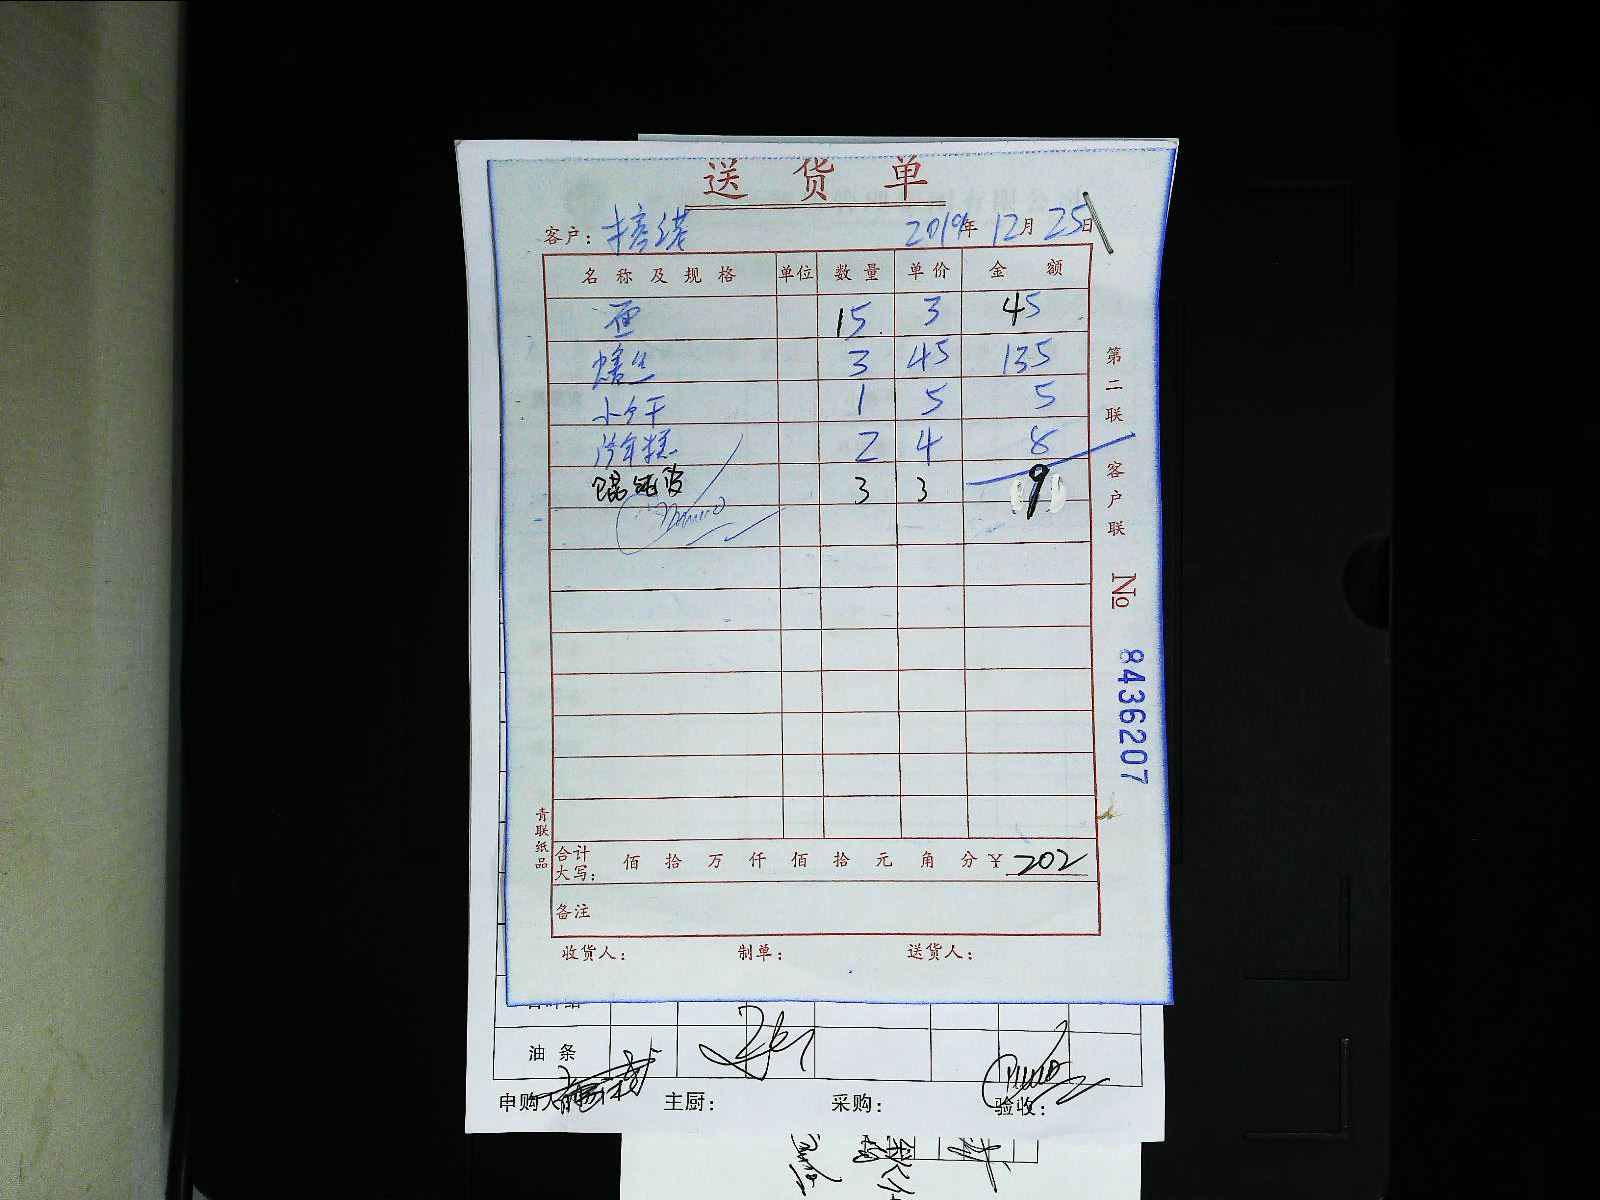 送货单
客户: 2019年 12月 25日
名称及规格 单位 数量 单价 金额
面 15 3 45
3 45 135
小么干 1 5 5
冷年糕 2 4 8
馄饨皮 3 3 9
第二联 客户联
№ 8436207
青联纸品
合计大写: 佰 拾 万 仟 佰 拾 元 角 分 ¥ 202
备注
收货人: 制单: 送货人:
油条
申购人 主厨: 采购: 验收: